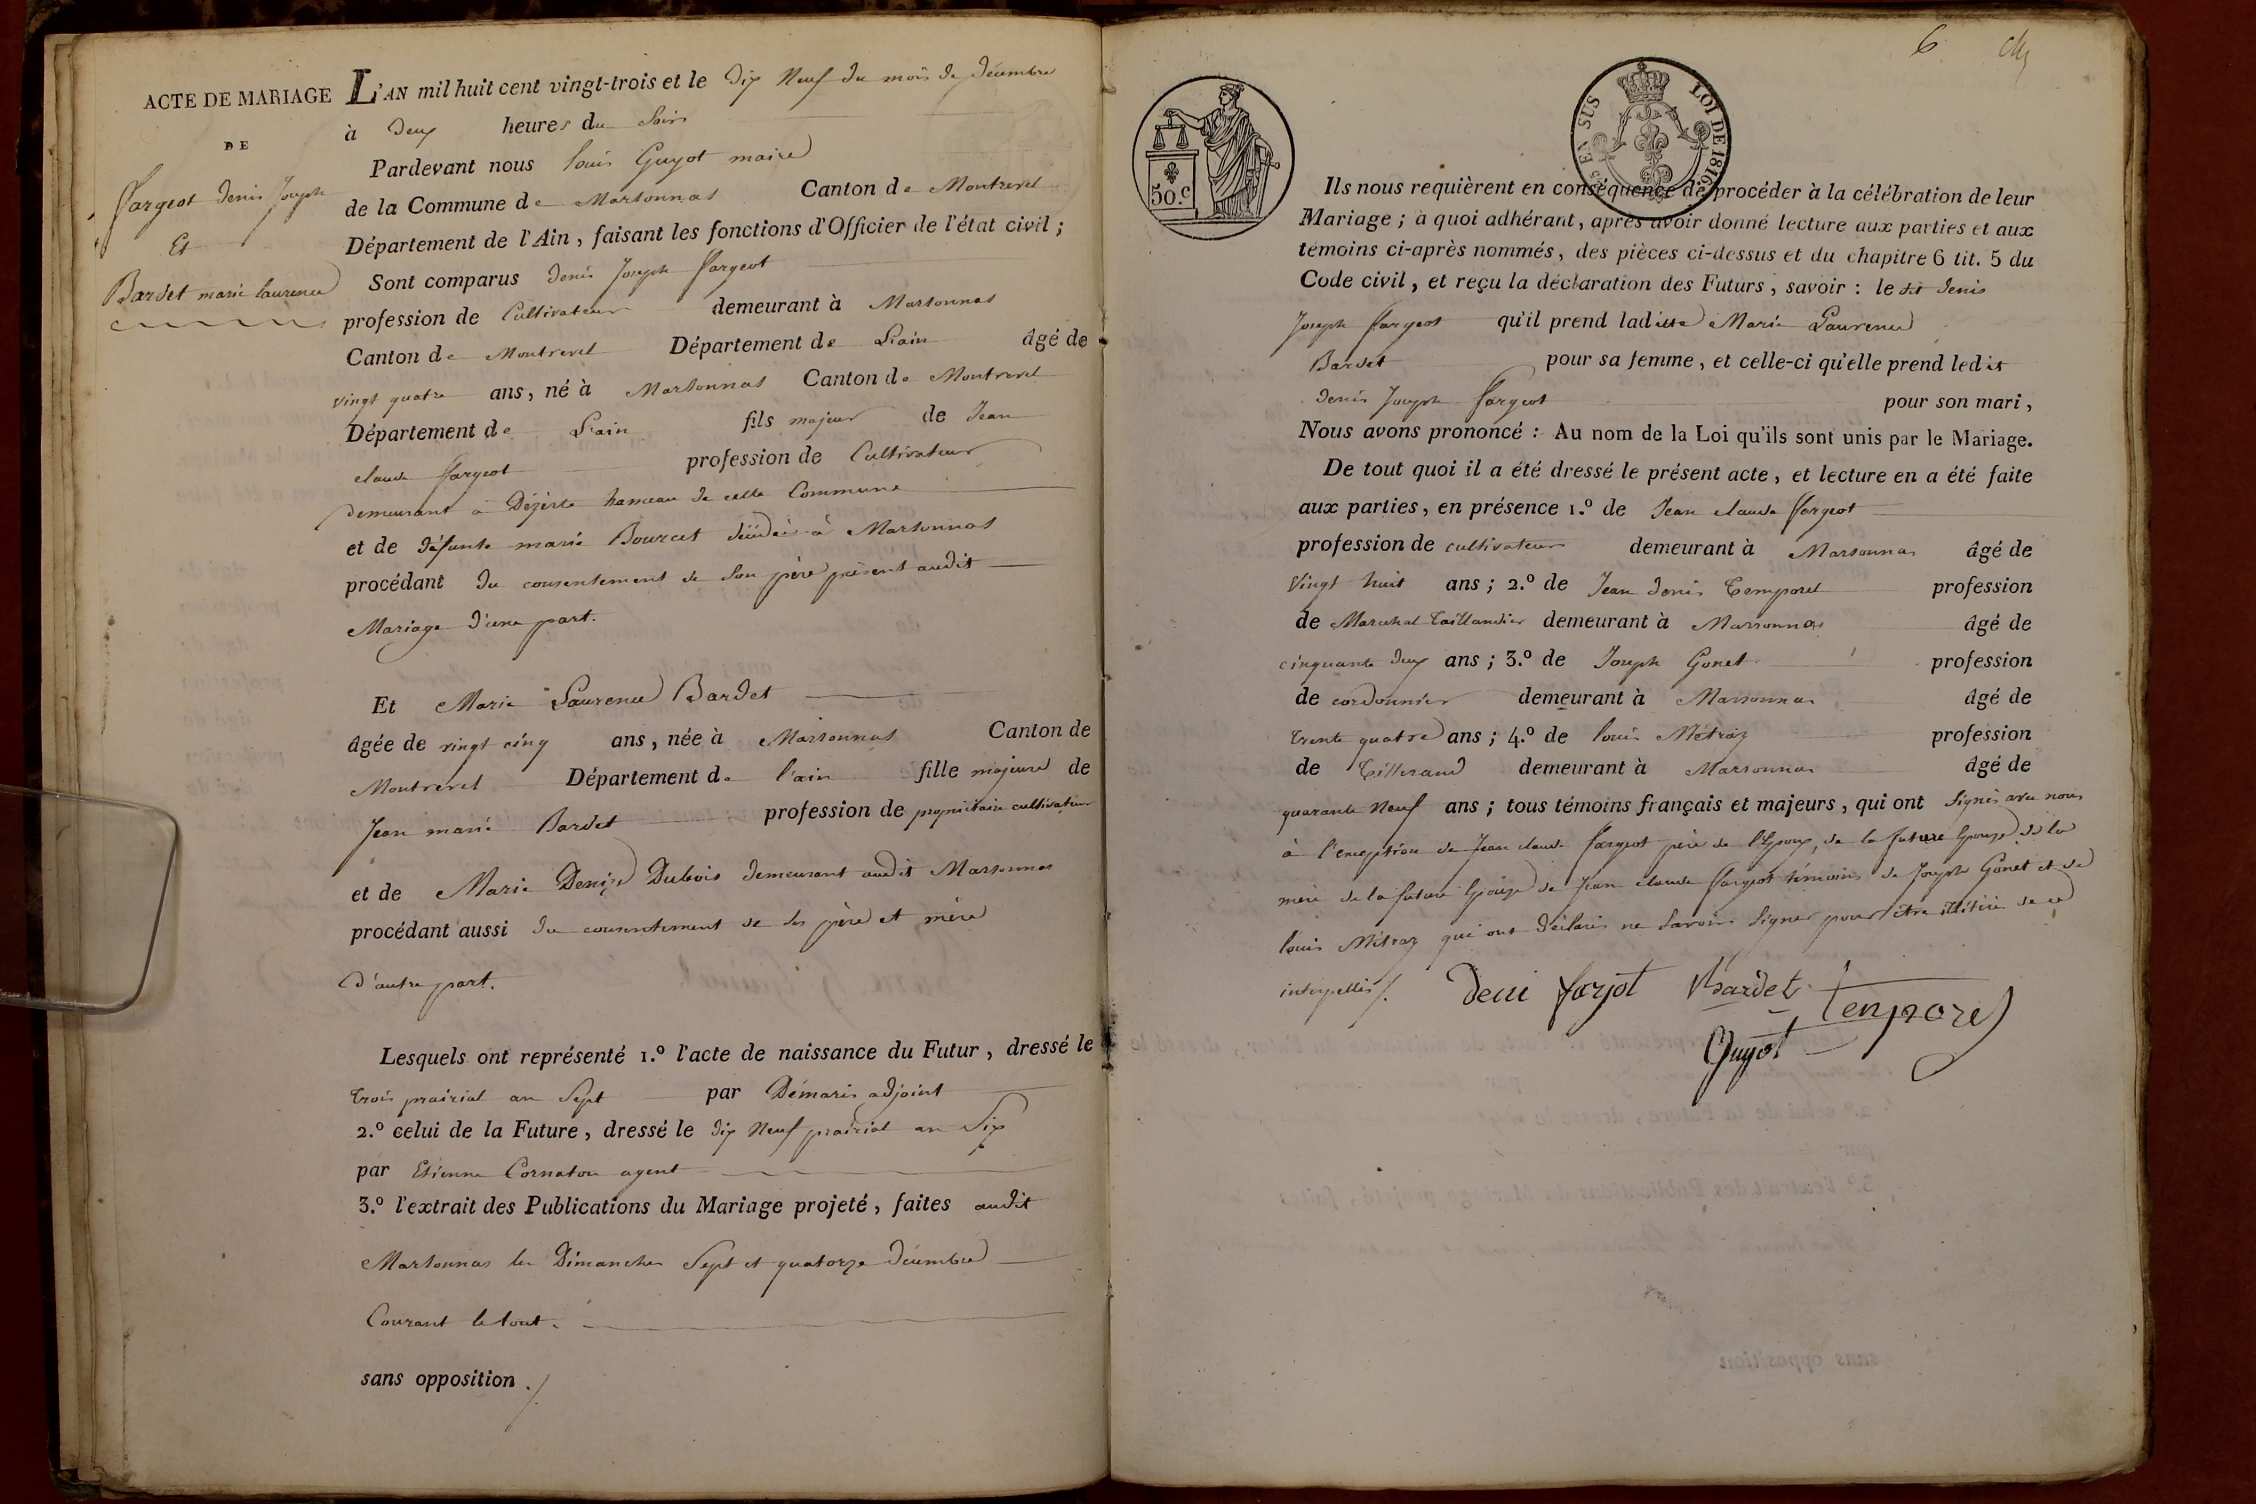 ACTE DE MARIAGE
DE
Fargeot denis Joseph
Et
Bardet marie laurence
L'AN mil huit cent vingt-trois et le dix Neuf du mois de décembre
à deux heures du Soir
Pardevant nous louis Guyot maire
de la Commune de Marsonnas Canton de Montrevel
Département de l'Ain, faisant les fonctions d'Officier de l'état civil;
Sont comparus denis Joseph Fargeot
profession de Cultivateur demeurant à Marsonnas
Canton de Montrevel Département de L'ain âgé de
vingt quatre ans, né à Marsonnas Canton de Montrevel
Département de L'ain fils majeur de Jean
claude Fargeot profession de Cultivateur
demeurant à Dézirte hameau de cette Commune
et de défunte marie Bourcet décédée à Marsonnas
procédant du consentement de Son père présent audit
Mariage d'une part.
Et Marie Laurence Bardet
âgée de vingt cinq ans, née à Marsonnas Canton de
Montrevel Département de l'ain fille majeure de
Jean marie Bardet profession de propriétaire cultivateur
et de Marie Denize Dubois demeurant audit Marsonnas
procédant aussi du consentement de ses père et mère
d'autre part.
Lesquels ont représenté 1.º l'acte de naissance du Futur, dressé le
trois prairial an Sept par Démaris adjoint
2.º celui de la Future, dressé le dix Neuf prairial an Six
par Etienne Cornaton agent
3.º l'extrait des Publications du Mariage projeté, faites audit
Marsonnas les Dimanches Sept et quatorze décembre
Courant le tout.
sans opposition ./.
6
50.c
EN SUS
LOI DE 1816
Ils nous requièrent en conséquence de procéder à la célébration de leur
Mariage; à quoi adhérant, après avoir donné lecture aux parties et aux
témoins ci-après nommés, des pièces ci-dessus et du chapitre 6 tit. 5 du
Code civil, et reçu la déclaration des Futurs, savoir: le dit denis
Joseph Fargeot qu'il prend laditte Marie Laurence
Bardet pour sa femme, et celle-ci qu'elle prend ledit
denis Joseph Fargeot pour son mari,
Nous avons prononcé: Au nom de la Loi qu'ils sont unis par le Mariage.
De tout quoi il a été dressé le présent acte, et lecture en a été faite
aux parties, en présence 1.º de Jean claude Fargeot
profession de cultivateur demeurant à Marsonnas âgé de
Vingt huit ans; 2.º de Jean denis Temporel profession
de Marechal Taillandier demeurant à Marsonnas âgé de
cinquante deux ans; 3.º de Joseph Gonet profession
de cordonnier demeurant à Marsonnas âgé de
trente quatre ans; 4.º de louis Métraz profession
de Tisserand demeurant à Marsonnas âgé de
quarante Neuf ans; tous témoins français et majeurs, qui ont Signés avec nous
à l'exception de Jean claude Fargeot père de l'Epoux, de la future Epouze, de la
mère de la future Epouze de Jean claude Fargeot témoins de Joseph Gonet et de
louis Métraz qui ont déclarés ne Savoir Signer pour être de ce
interpellés ./.
Deni farjot Bardet
Tenporel
Guyot